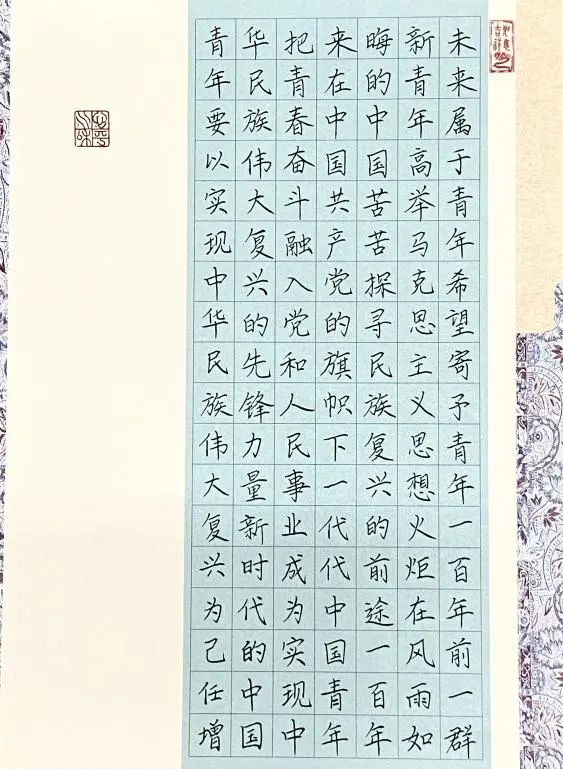 未来属于青年希望寄予青年一百年前一群
新青年高举马克思主义思想火炬在风雨如
晦的中国苦苦探寻民族复兴的前途一百年
来在中国共产党的旗帜下一代代中国青年
把青春奋斗融入党和人民事业成为实现中
华民族伟大复兴的先锋力量新时代的中国
青年要以实现中华民族伟大复兴为己任增